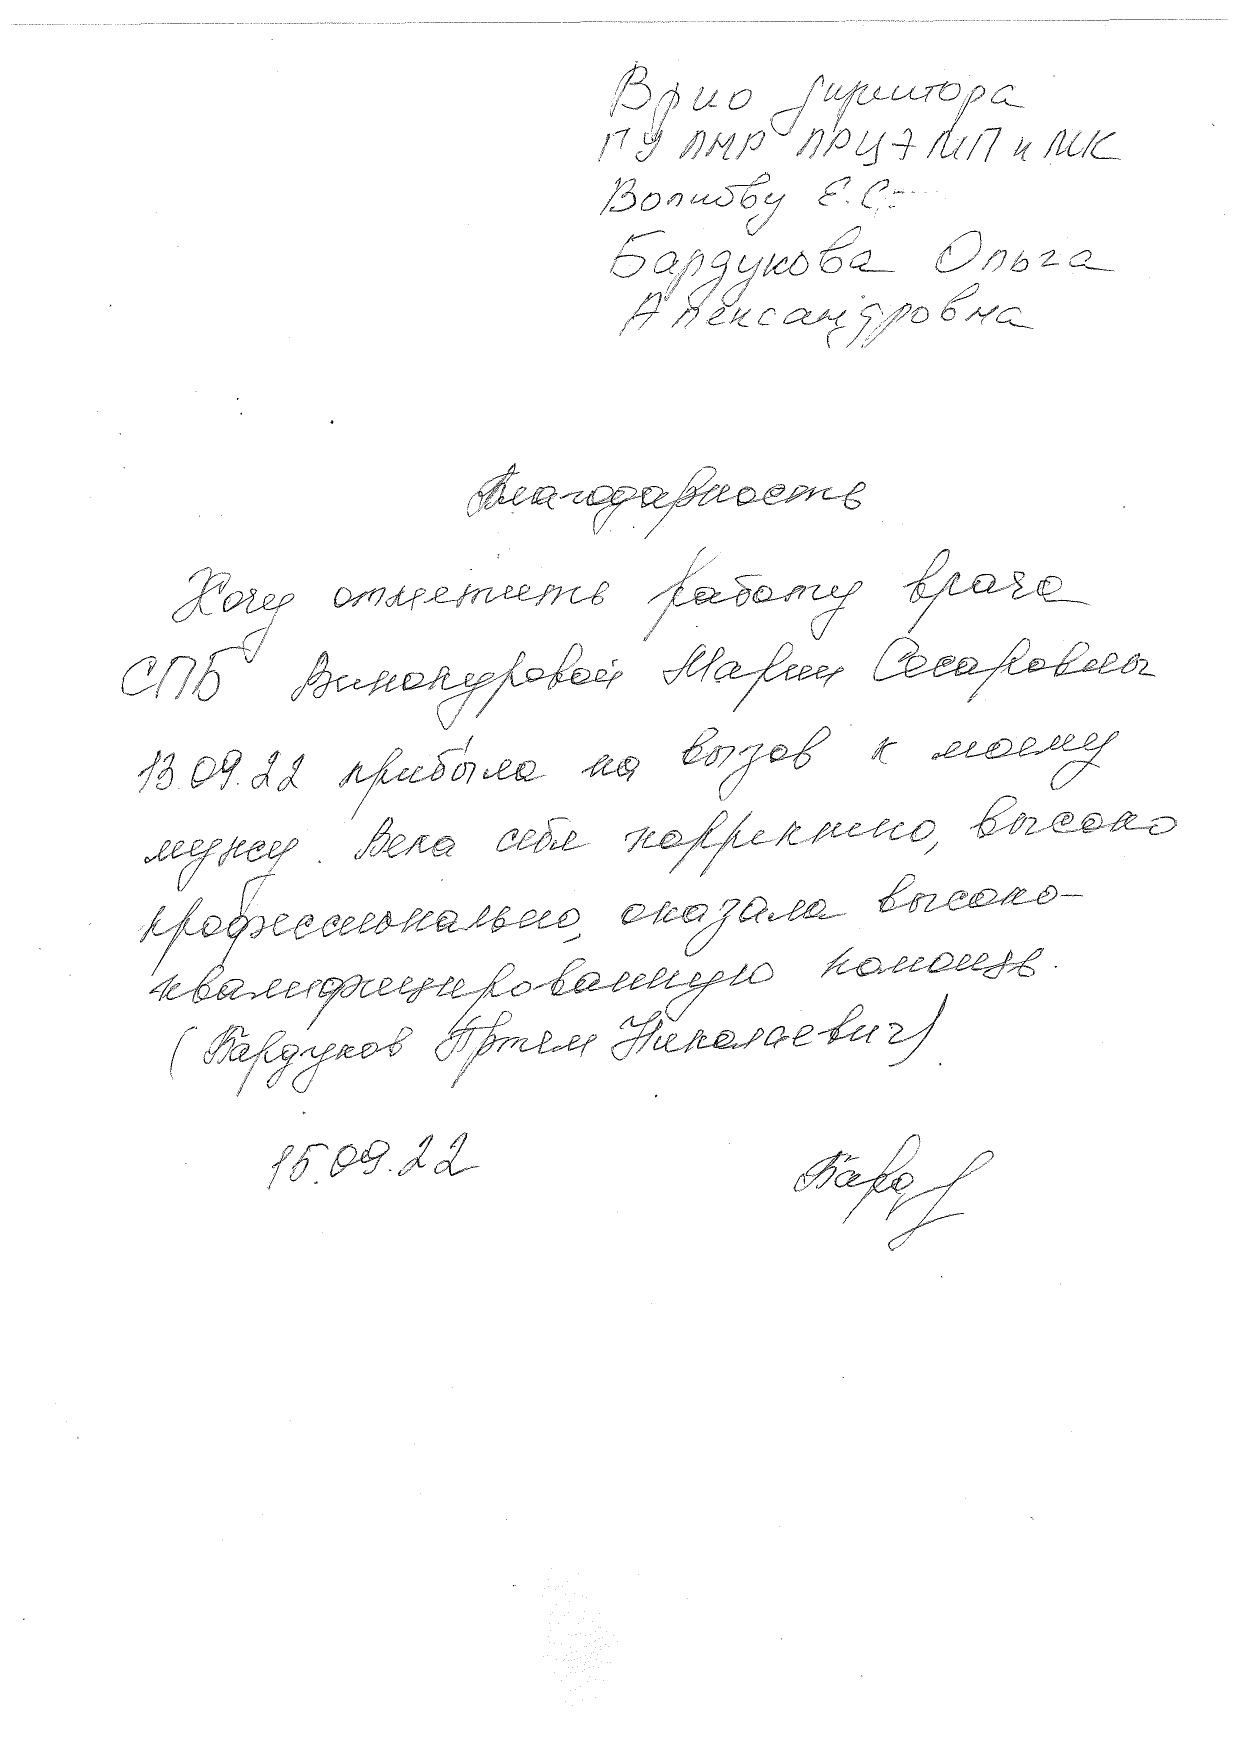 Врио директора
ГУ ПМР ПРЦЭМП и МК
Волкову Е.С.
Бардукова Ольга
Александровна
Благодарность
Хочу отметить работу врача
СПБ Винокуровой Марии Сесаровны
13.09.22 прибыла на вызов к моему
мужу. Вела себя корректно, высоко
профессионально, оказала высоко-
квалифицированную помощь.
(Бардуков Артем Николаевич)
15.09.22